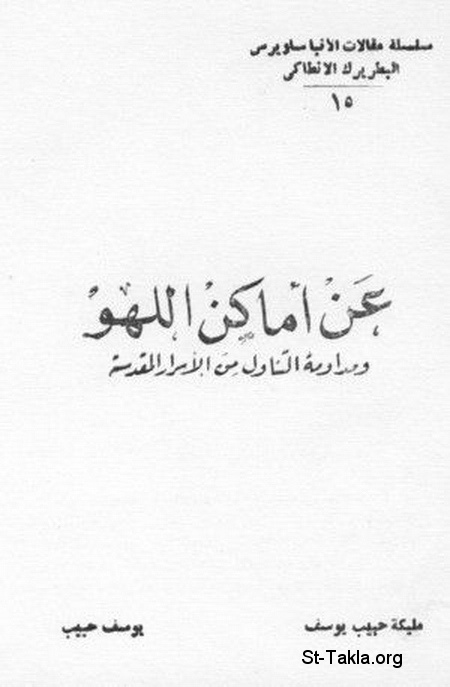 سلسلة مقالات الأنبا ساويرس
البطريرك الانطاكى
١٥
عَنْ أماكِنْ اللهوْ
ومداومة التناول مِنَ الأسرار المقدسة
مليكة حبيب يوسف
يوسف حبيب
St-Takla.org